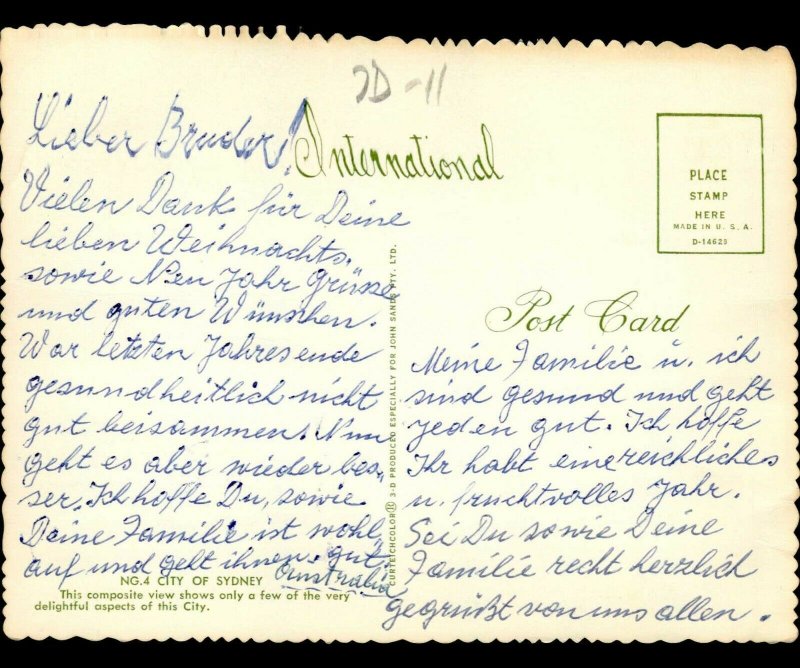 2D-11
Lieber Bruder!
International
Vielen Dank für Deine
lieben Weihnachts,
sowie Neu Jahr grüsse
und guten Wünschen.
War letzten Jahresende
gesundheitlich nicht
gut beisammen. Nun
geht es aber wieder bes„
ser. Ich hoffe Du, sowie
Deine Familie ist wohl
auf und geht ihnen gut.
Australia
NG.4 CITY OF SYDNEY
This composite view shows only a few of the very
delightful aspects of this City.
CURTEICHCOLOR® 3-D PRODUCED ESPECIALLY FOR JOHN SANDS PTY. LTD.
PLACE
STAMP
HERE
MADE IN U. S. A.
D-14629
Post Card
Meine Familie u. ich
sind gesund und geht
jeden gut. Ich hoffe
Ihr habt einereichliches
u. fruchtvolles Jahr.
Sei Du sowie Deine
Familie recht herzlich
gegrüßt von uns allen.